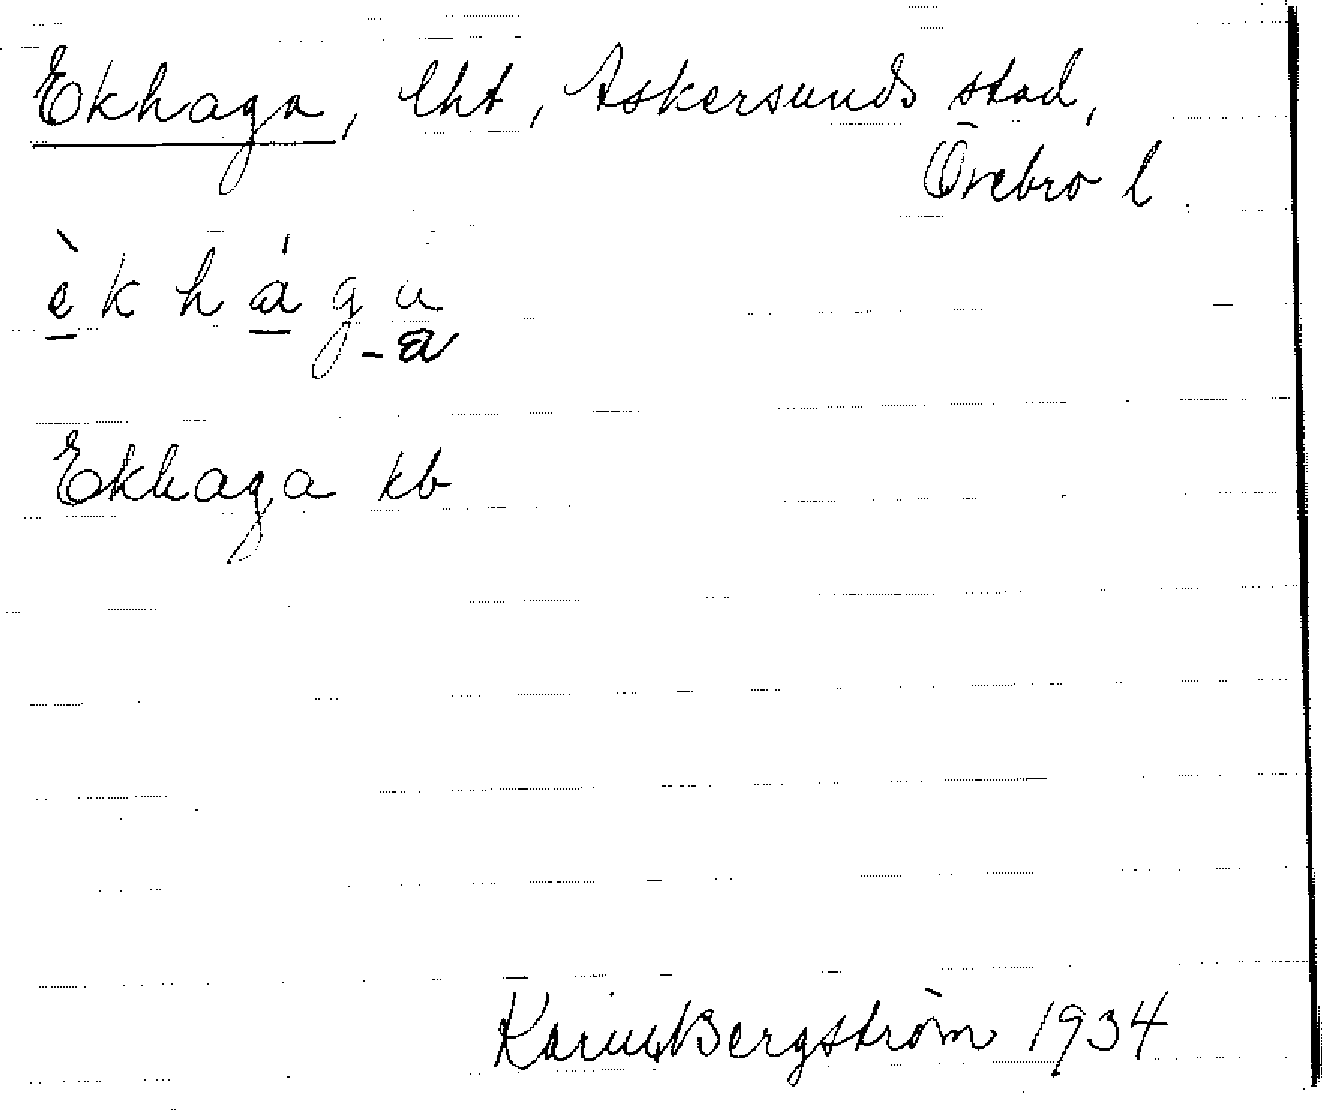 Ekhaga, lht, Askersunds stad,
Örebro l.
è k h á g a
- a
Ekhaga kb
Karin Bergström 1934